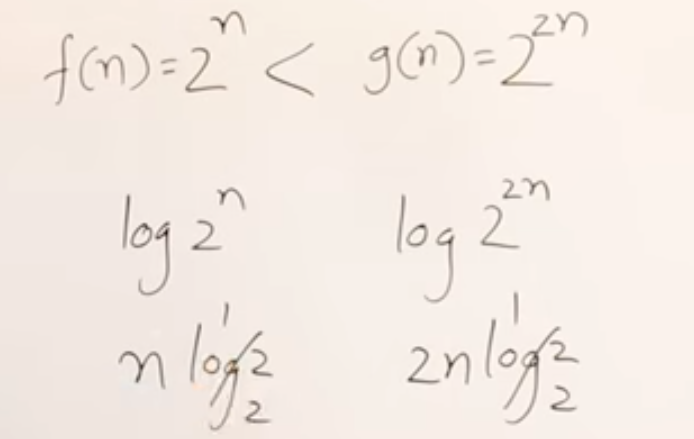 f(n)=2ⁿ < g(n)=2²ⁿ
log 2ⁿ log 2²ⁿ
1 1
n log₂2 2n log₂2